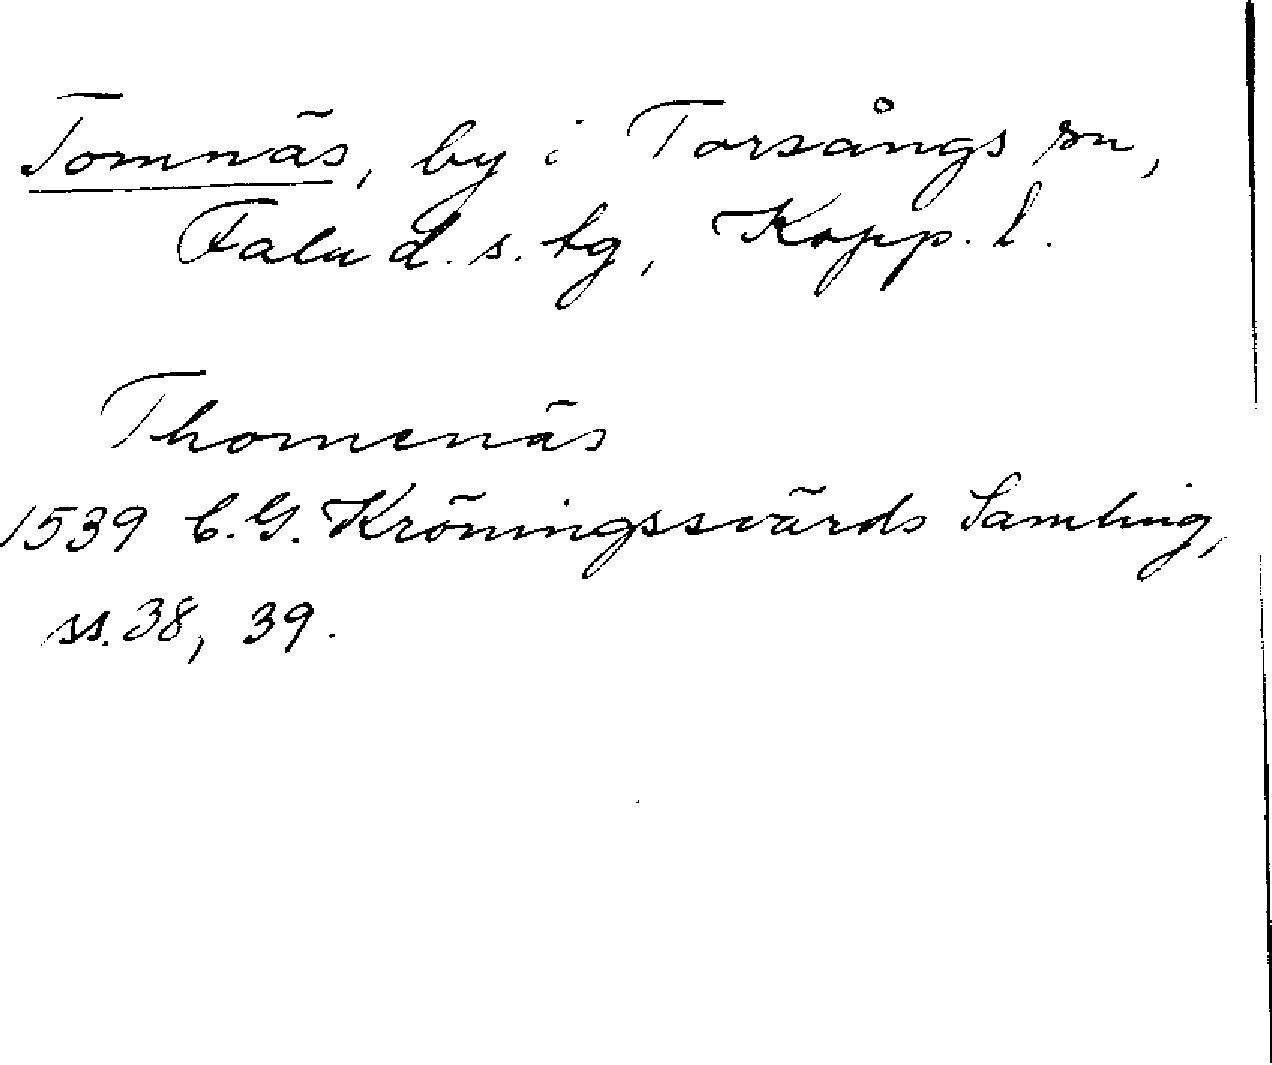 Tomnäs, by i Torsångs sn,
Falu d. s. tg, Kopp. l.
Thomenäs
1539 C. G. Kröningssvärds Samling,
ss. 38, 39.